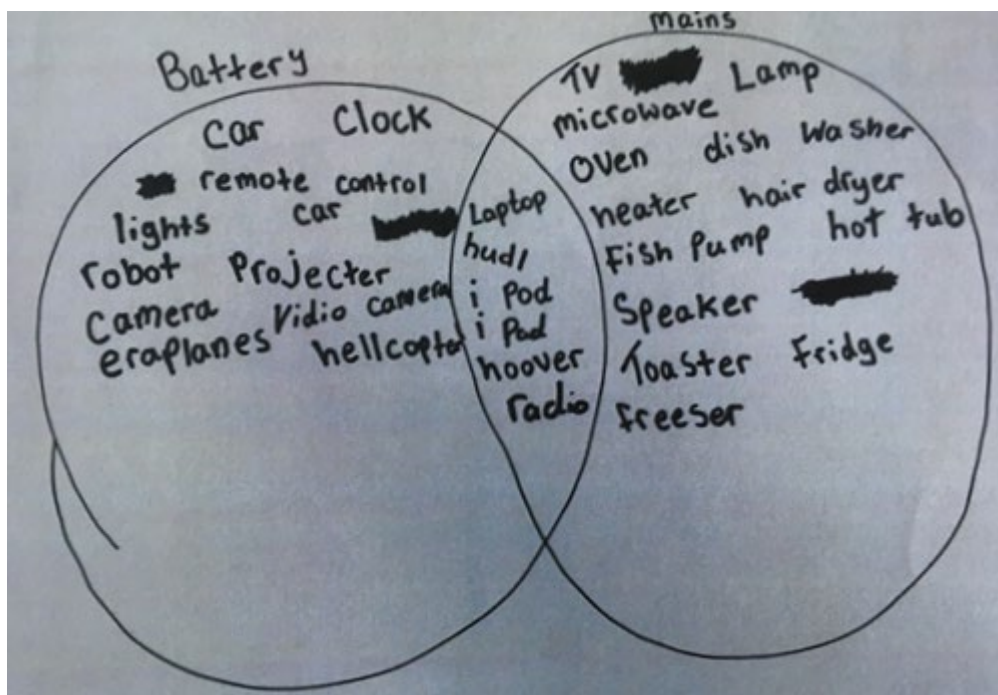 Battery
Car Clock
remote control
lights car
robot Projecter
Camera Vidio camera
eraplanes hellcopter
Laptop
hudl
i Pod
i Pad
hoover
radio
mains
TV Lamp
microwave
Oven dish washer
heater hair dryer
Fish Pump hot tub
Speaker
Toaster Fridge
freeser